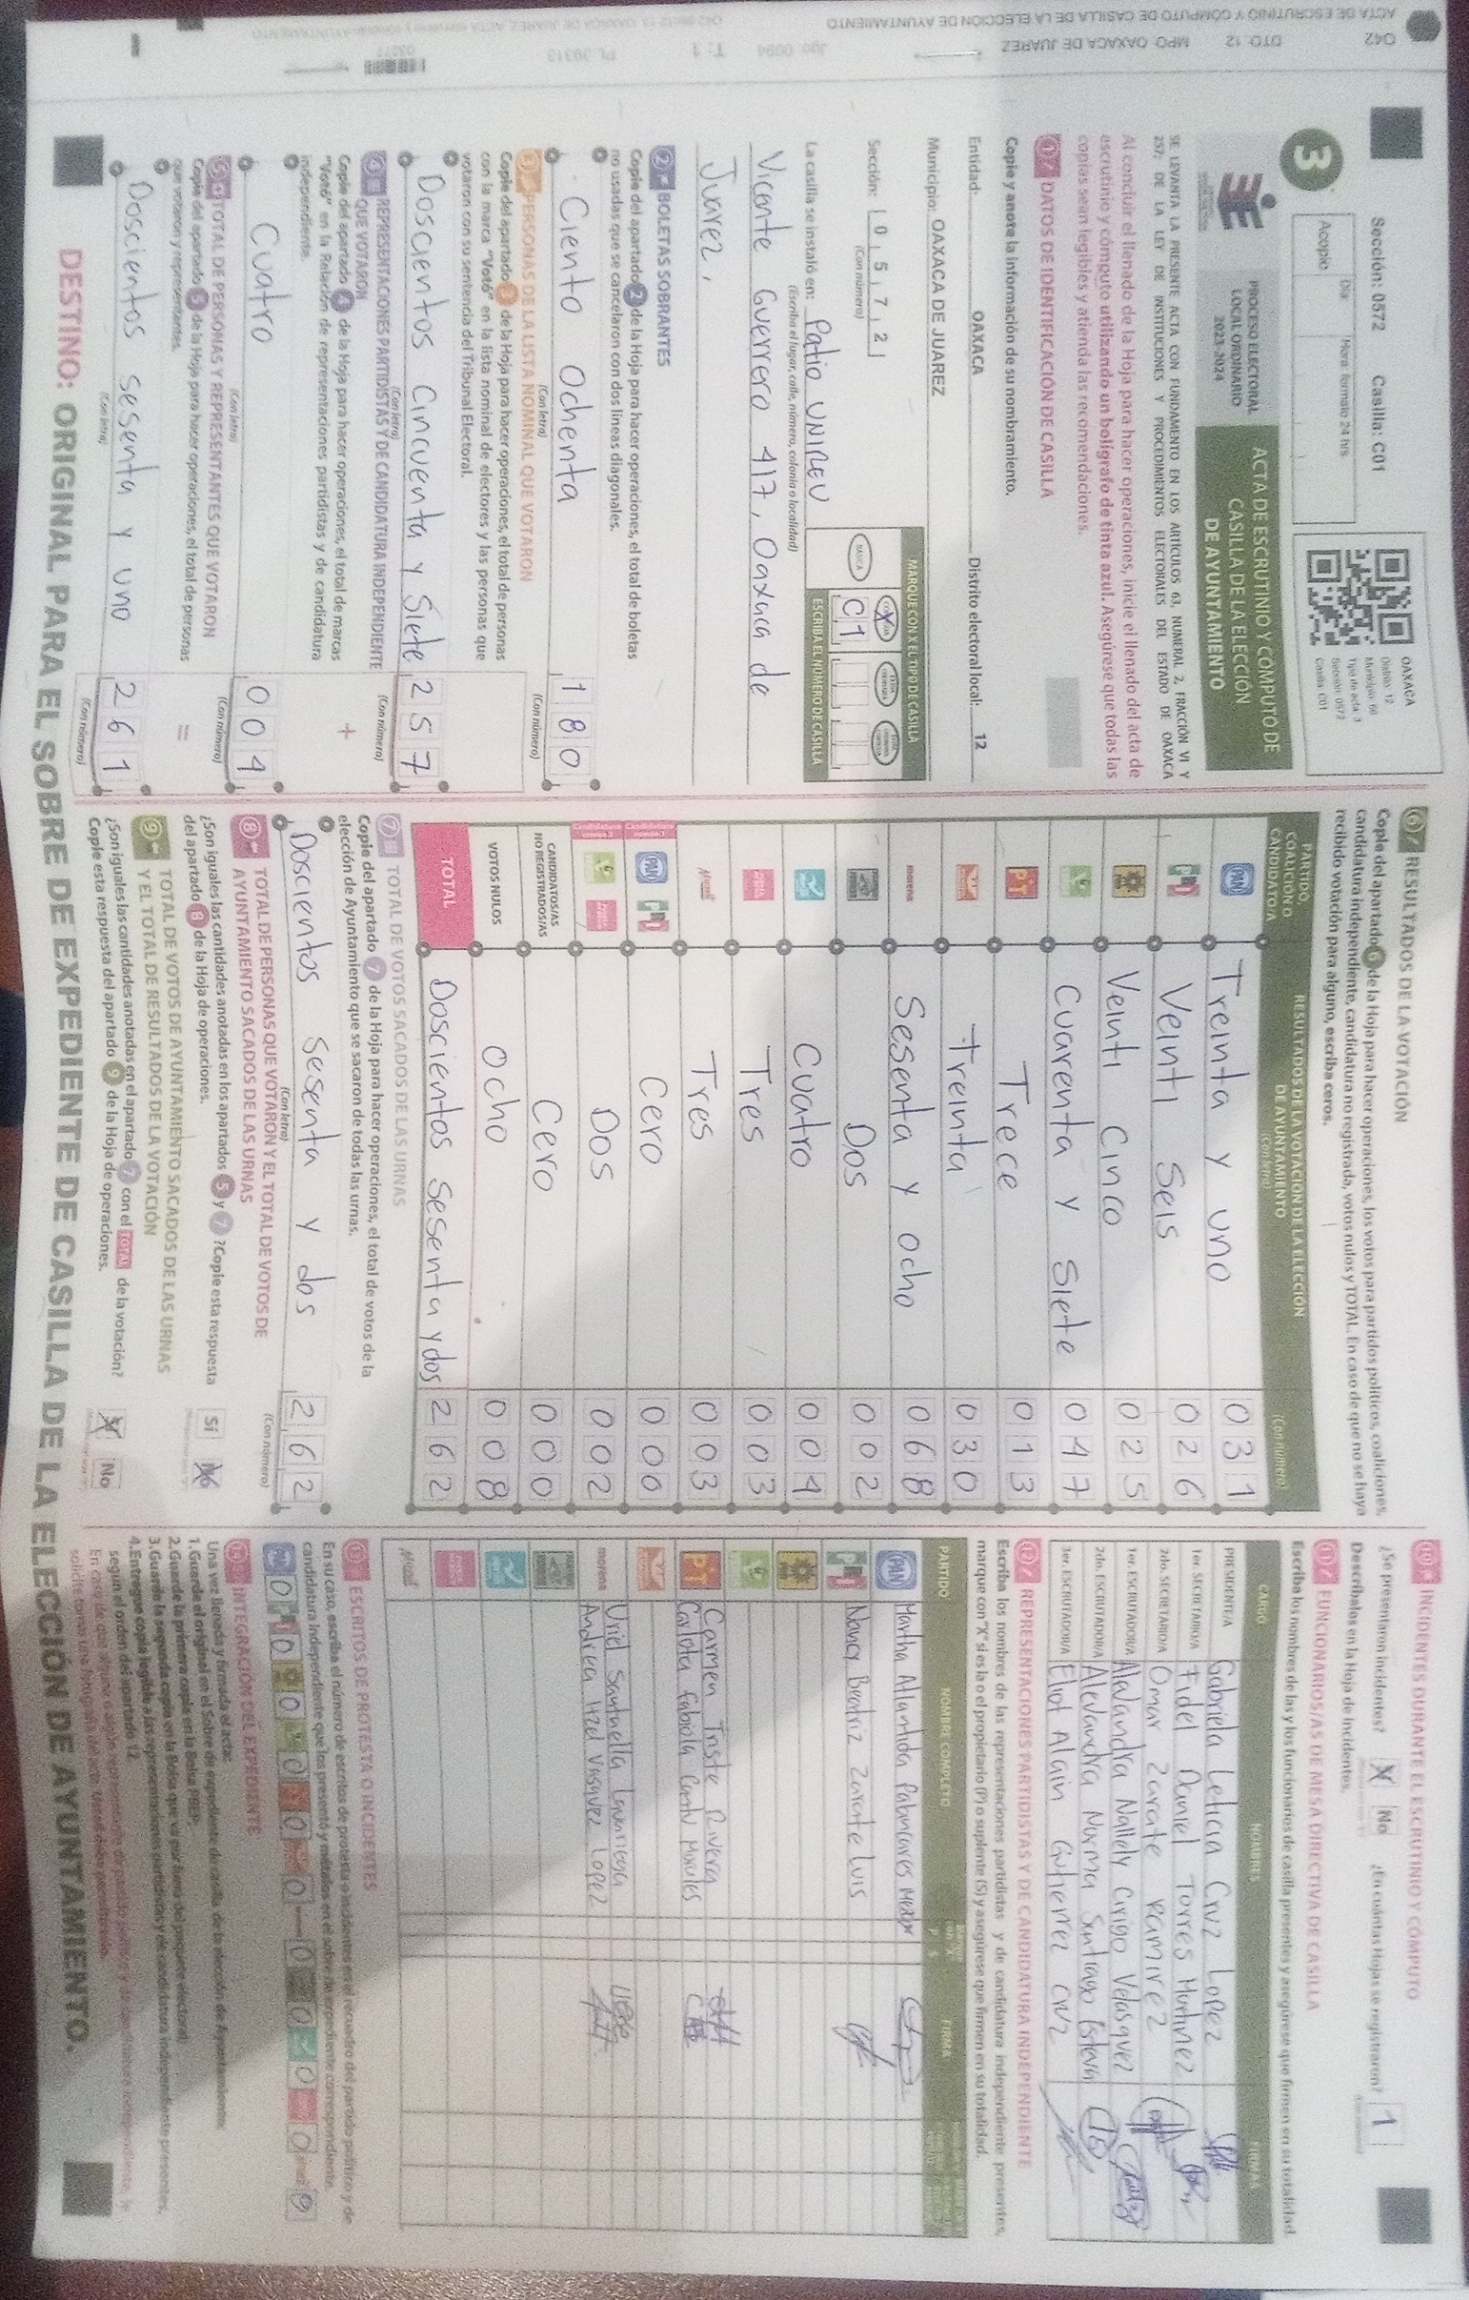 Sección: 0572 Casilla: C01
Acopio
Día Hora: formato 24 hrs
OAXACA
Distrito: 12
Tipo de acta: 3
Sección: 0572
Casilla: C01
3
PROCESO ELECTORAL
LOCAL ORDINARIO
2023-2024
ACTA DE ESCRUTINIO Y CÓMPUTO DE
CASILLA DE LA ELECCIÓN
DE AYUNTAMIENTO
SE LEVANTA LA PRESENTE ACTA CON FUNDAMENTO EN LOS ARTÍCULOS 63, NUMERAL 2, FRACCIÓN VI Y
257; DE LA LEY DE INSTITUCIONES Y PROCEDIMIENTOS ELECTORALES DEL ESTADO DE OAXACA
Al concluir el llenado de la Hoja para hacer operaciones, inicie el llenado del acta de
escrutinio y cómputo utilizando un bolígrafo de tinta azul. Asegúrese que todas las
copias sean legibles y atienda las recomendaciones.
1 DATOS DE IDENTIFICACIÓN DE CASILLA
Copie y anote la información de su nombramiento.
Entidad: OAXACA Distrito electoral local: 12
Municipio: OAXACA DE JUAREZ
Sección: 0 5 7 2
(Con número)
MARQUE CON X EL TIPO DE CASILLA
BÁSICA
C1
ESCRIBA EL NÚMERO DE CASILLA
La casilla se instaló en: Patio UNIREU
(Escriba el lugar, calle, número, colonia o localidad)
Vicente Guerrero 417, Oaxaca de
Juarez,
2 BOLETAS SOBRANTES
Copie del apartado 2 de la Hoja para hacer operaciones, el total de boletas
no usadas que se cancelaron con dos líneas diagonales.
Ciento Ochenta 180
(Con letra) (Con número)
3 PERSONAS DE LA LISTA NOMINAL QUE VOTARON
Copie del apartado 3 de la Hoja para hacer operaciones, el total de personas
con la marca "Votó" en la lista nominal de electores y las personas que
votaron con su sentencia del Tribunal Electoral.
Doscientos Cincuenta y Siete 257
(Con letra) (Con número)
4 REPRESENTACIONES PARTIDISTAS Y DE CANDIDATURA INDEPENDIENTE
QUE VOTARON
Copie del apartado 4 de la Hoja para hacer operaciones, el total de marcas
"Votó" en la Relación de representaciones partidistas y de candidatura
independiente.
+
Cuatro 004
(Con letra) (Con número)
5 TOTAL DE PERSONAS Y REPRESENTANTES QUE VOTARON
Copie del apartado 5 de la Hoja para hacer operaciones, el total de personas
que votaron y representantes.
=
Doscientos sesenta y uno 261
(Con letra) (Con número)
6 RESULTADOS DE LA VOTACIÓN
Copie del apartado 6 de la Hoja para hacer operaciones, los votos para partidos políticos, coaliciones,
candidatura independiente, candidatura no registrada, votos nulos y TOTAL. En caso de que no se haya
recibido votación para alguno, escriba ceros.
PARTIDO,
COALICIÓN O
CANDIDATO/A
RESULTADOS DE LA VOTACIÓN DE LA ELECCIÓN
DE AYUNTAMIENTO
(Con letra) (Con número)
PAN Treinta y uno 031
Veinti Seis 026
Veinti Cinco 025
Cuarenta y Siete 047
PT Trece 013
treinta 030
morena Sesenta y ocho 068
Dos 002
Cuatro 004
Tres 003
Tres 003
PAN Cero 000
Dos 002
CANDIDATOS/AS
NO REGISTRADOS/AS Cero 000
VOTOS NULOS Ocho 008
TOTAL Doscientos Sesenta y dos 262
7 TOTAL DE VOTOS SACADOS DE LAS URNAS
Copie del apartado 7 de la Hoja para hacer operaciones, el total de votos de la
elección de Ayuntamiento que se sacaron de todas las urnas.
Doscientos Sesenta y dos 262
(Con letra) (Con número)
8 TOTAL DE PERSONAS QUE VOTARON Y EL TOTAL DE VOTOS DE
AYUNTAMIENTO SACADOS DE LAS URNAS
¿Son iguales las cantidades anotadas en los apartados 5 y 7 ?Copie esta respuesta
del apartado 8 de la Hoja de operaciones.
Sí
9 TOTAL DE VOTOS DE AYUNTAMIENTO SACADOS DE LAS URNAS
Y EL TOTAL DE RESULTADOS DE LA VOTACIÓN
¿Son iguales las cantidades anotadas en el apartado 7 con el TOTAL de la votación?
Copie esta respuesta del apartado 9 de la Hoja de operaciones.
No
10 INCIDENTES DURANTE EL ESCRUTINIO Y CÓMPUTO
¿Se presentaron incidentes? No ¿En cuántas Hojas se registraron? 1
Descríbalos en la Hoja de Incidentes.
11 FUNCIONARIOS/AS DE MESA DIRECTIVA DE CASILLA
Escriba los nombres de las y los funcionarios de casilla presentes y asegúrese que firmen en su totalidad.
CARGO NOMBRES FIRMAS
PRESIDENTE/A Gabriela Leticia Cruz Lopez
1er. SECRETARIO/A Fidel Daniel Torres Martinez
2do. SECRETARIO/A Omar Zarate Ramirez
1er. ESCRUTADOR/A Alejandra Nallely Velasquez
2do. ESCRUTADOR/A Alejandra Norma Santiago Esteva
3er. ESCRUTADOR/A Eliot Alain Gutierrez Cruz
12 REPRESENTACIONES PARTIDISTAS Y DE CANDIDATURA INDEPENDIENTE
Escriba los nombres de las representaciones partidistas y de candidatura independiente presentes,
marque con "X" si es la o el propietario (P) o suplente (S) y asegúrese que firmen en su totalidad.
PARTIDO NOMBRE COMPLETO P S FIRMA
PAN Martha
Nancy Beatriz Zarate Luis
PT Carmen Triste Rivera
Carlota Fabiola
morena Uriel Santaella
Andrea Itzel Vasquez Lopez
13 ESCRITOS DE PROTESTA O INCIDENTES
En su caso, escriba el número de escritos de protesta o incidentes en el recuadro del partido político y de
candidatura independiente que los presentó y métalos en el sobre de expediente correspondiente.
0 0 0 0 0 0 0 0 0 0
14 INTEGRACIÓN DEL EXPEDIENTE
Una vez llenada y firmada el acta:
1.Guarde el original en el Sobre de expediente de casilla de la elección de Ayuntamiento.
2.Guarde la primera copia en la Bolsa PREP.
3.Guarde la segunda copia en la Bolsa que va por fuera del paquete electoral.
4.Entregue copia legible a las representaciones partidistas y de candidatura independiente presentes,
según el orden del apartado 12.
DESTINO: ORIGINAL PARA EL SOBRE DE EXPEDIENTE DE CASILLA DE LA ELECCIÓN DE AYUNTAMIENTO.
042 DTO. 12 MPO. OAXACA DE JUAREZ
ACTA DE ESCRUTINIO Y COMPUTO DE CASILLA DE LA ELECCION DE AYUNTAMIENTO